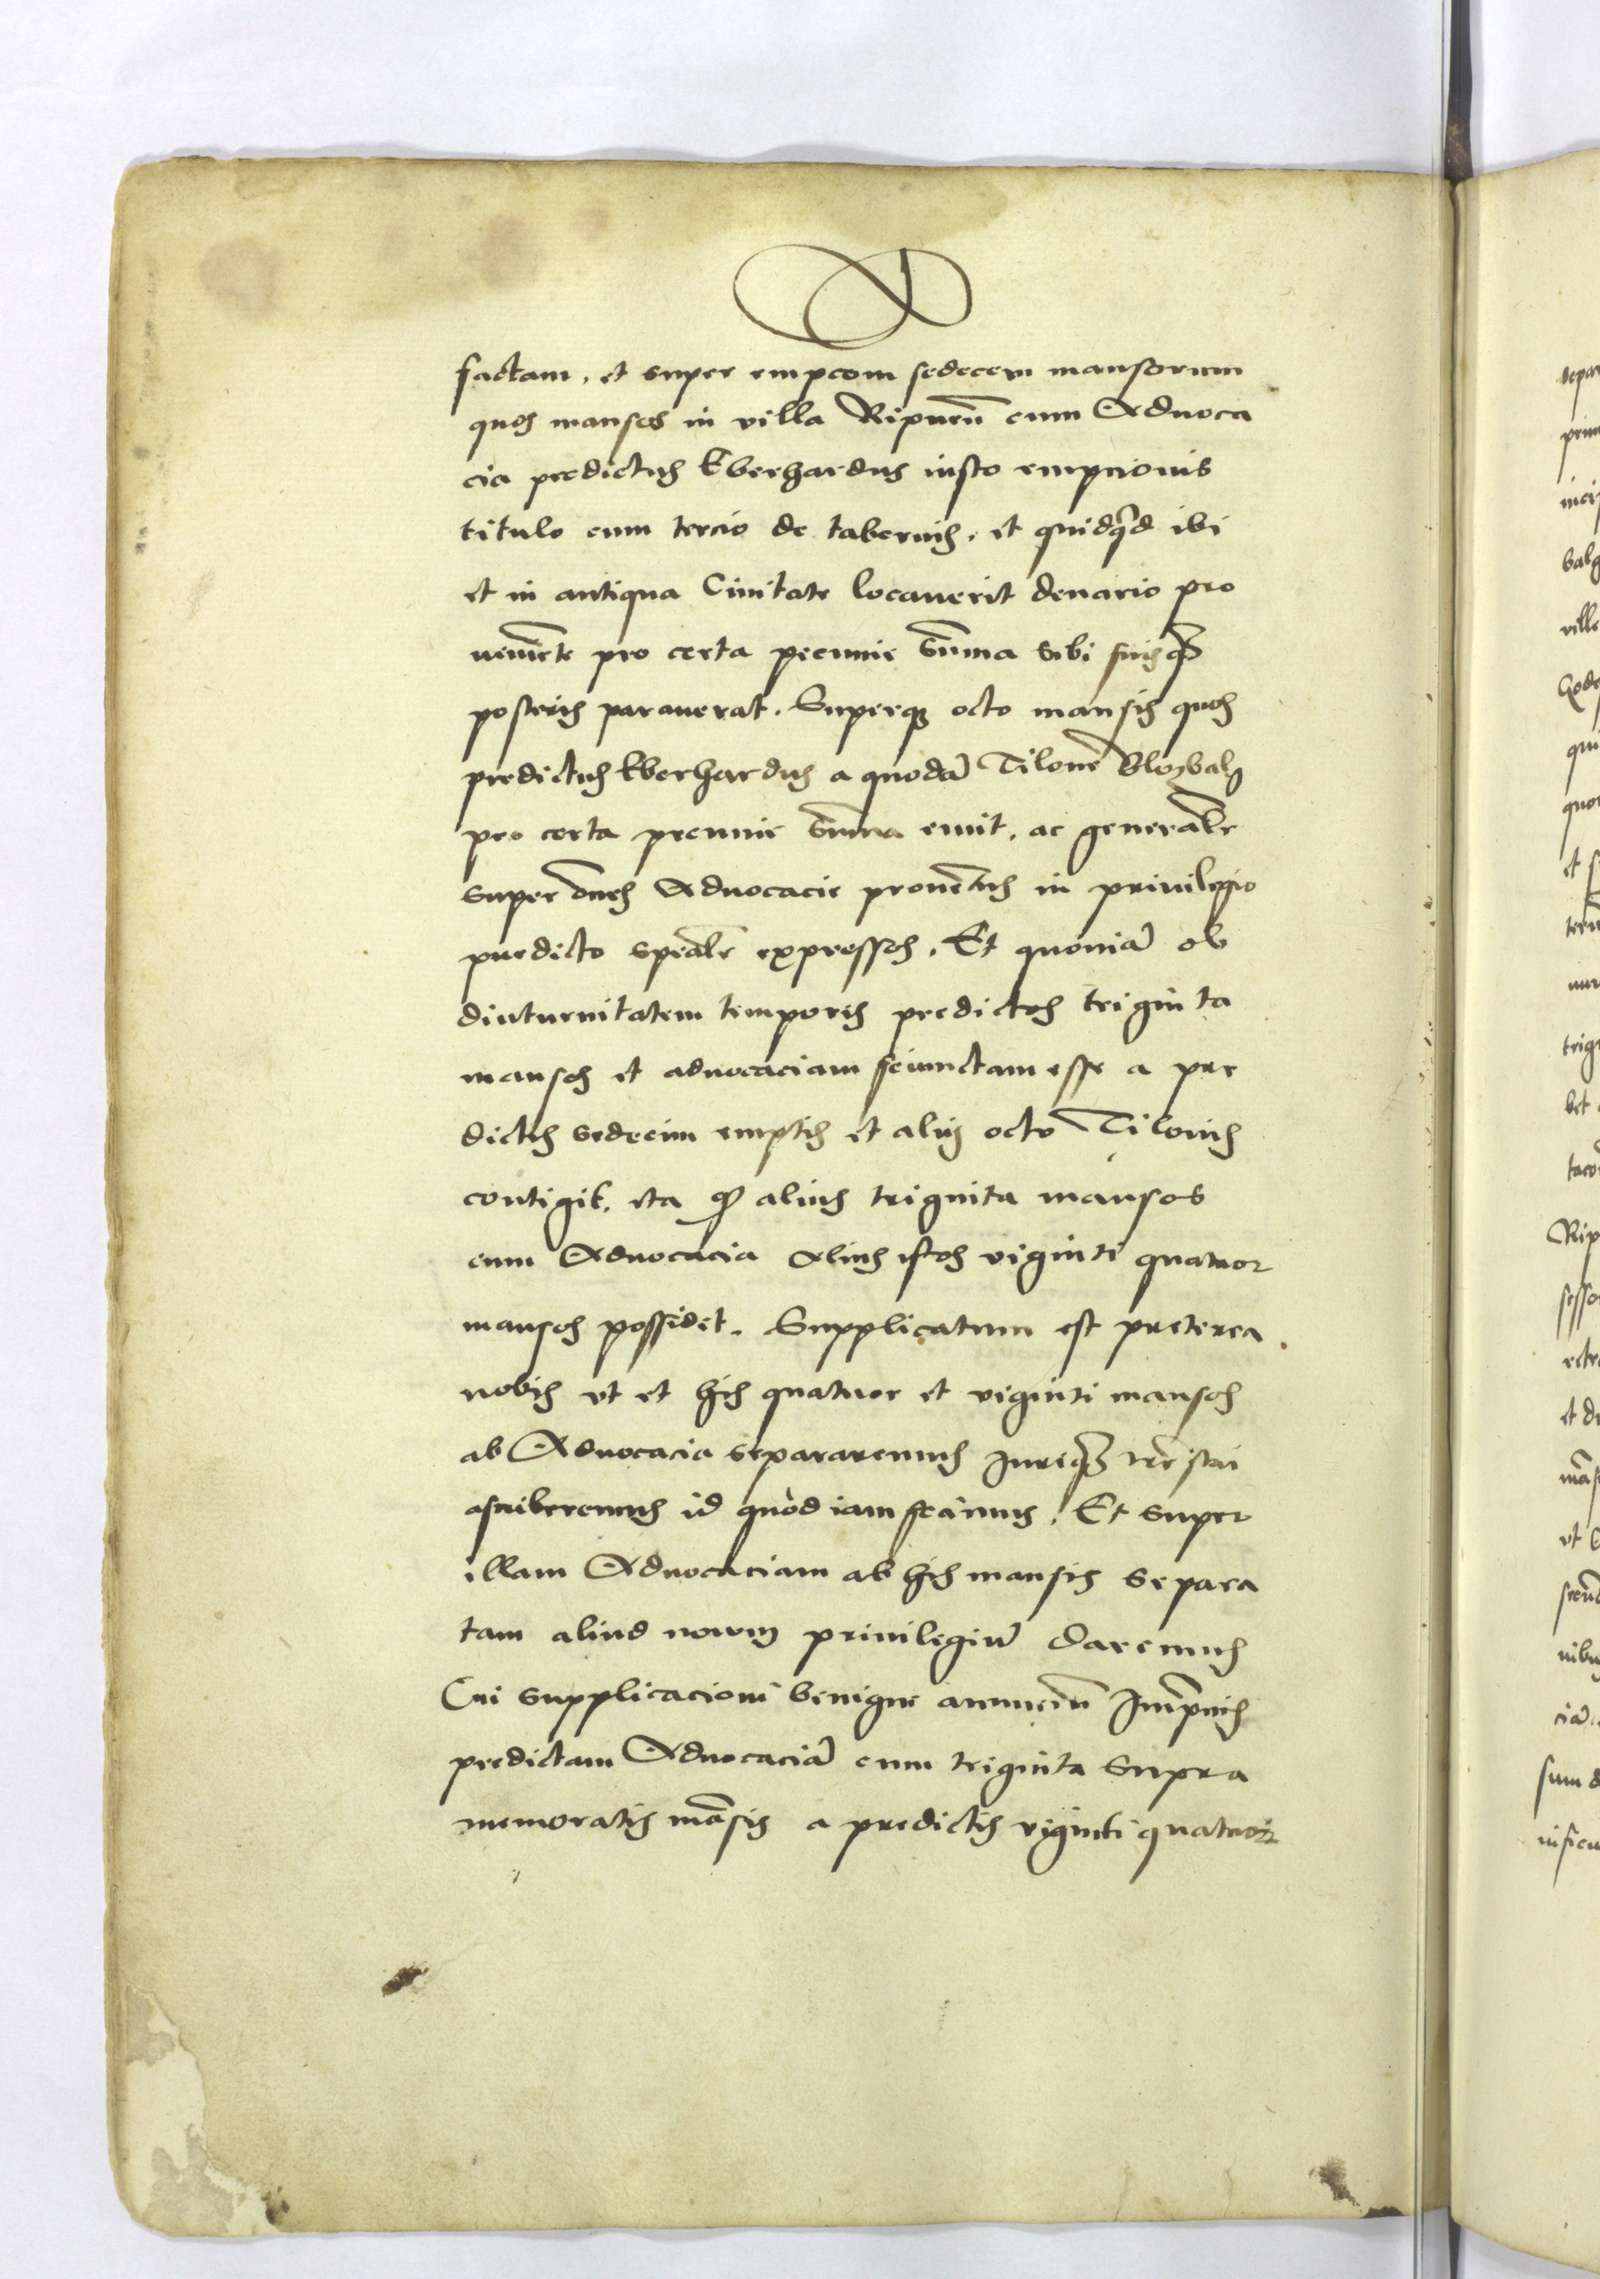 factam, et super empcom sedecem mansorum
quos mansos in villa Ripuen̄ cum Aduoca
cia predictus Eberhardus iusto empcionis
titulo cum tercio de tabernis, et quidqd ibi
et in antiqua Ciuitate locauerit denario pro
uenie͞te pro certa pecunie Su͞ma sibi suisq͞
posteris parauerat. Superq octo mansis quos
predictus Eberhardus a quoda͞ Tilone͞ Blozbalg
pro certa pecunie Su͞ma emit, ac generalr͞
super o͞nes Aduocacie proue͞tus in priuilegio
predicto spe͞alr expressos. Et quonia͞ ob
diuturnitatem temporis predictos triginta
mansos et aduocaciam seiunctam esse a pre
dictis sedecim emptis et alijs octo Tilonis
contigit, ita q͞ alius triginta mansos
cum Aduocacia Alius istos viginti quatuor
mansos possidet. Supplicatum est preterea
nobis vt et his quatuor et viginti mansos
ab Aduocacia separaremus Jureq͞ ter͞restri
ascriberemus id quod iam fecimus. Et super
illam Aduocaciam ab his mansis separa
tam aliud nouum priuilegiu͞ daremus
Cui supplicacioni benigne annuen͞
predictam Aduocacia͞ cum triginta supra
memoratis ma͞sis a predictis viginti quatuor